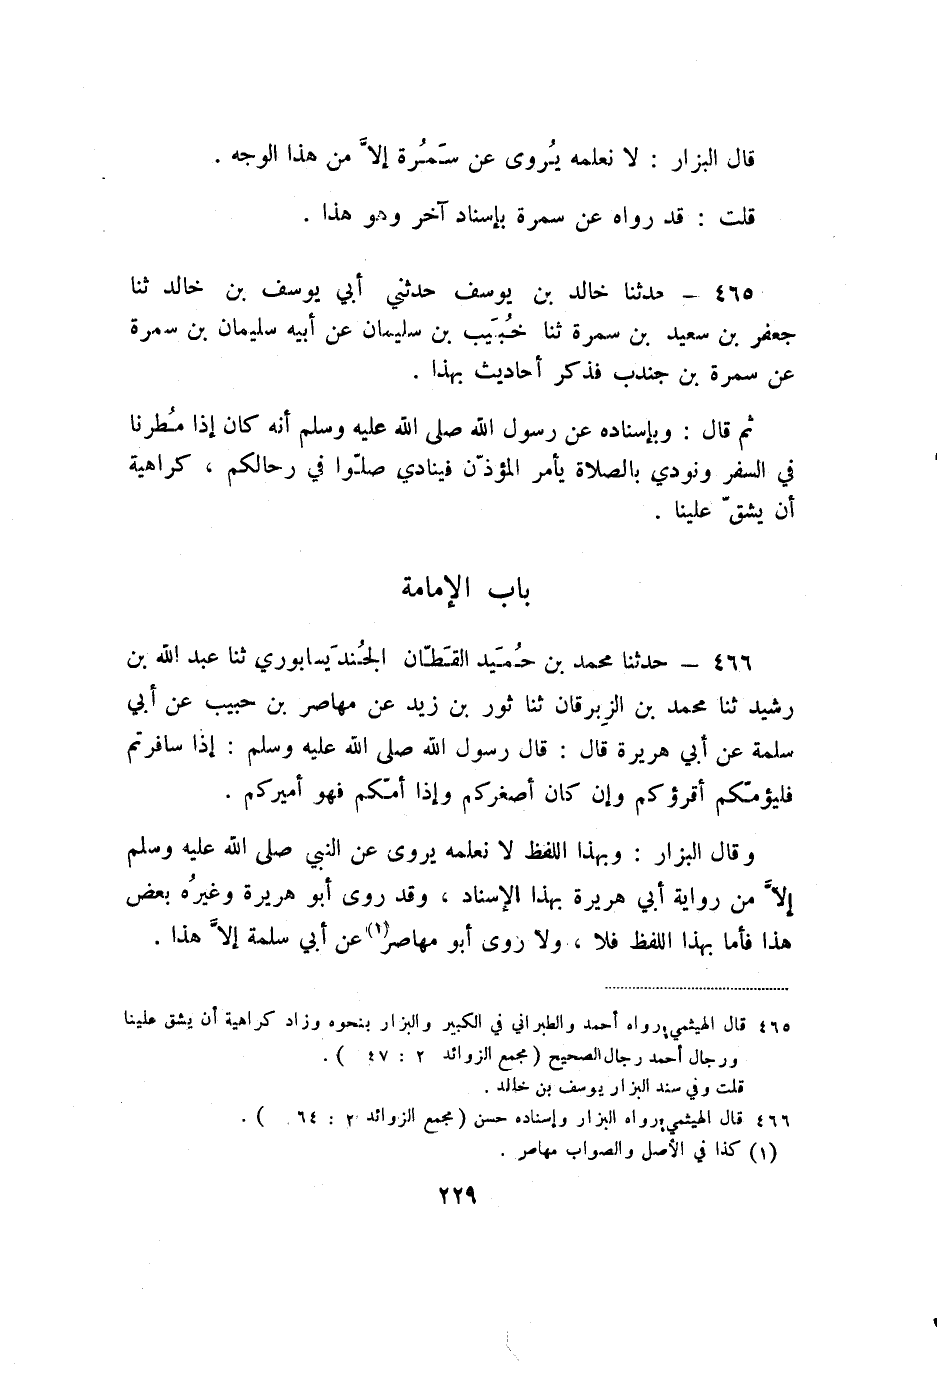 قال البزار : لا نعلمه يُروى عن سَمُرة إلاَّ من هذا الوجه .
قلت : قد رواه عن سمرة بإسناد آخر وهو هذا .
٤٦٥ – حدثنا خالد بن يوسف حدثني أبي يوسف بن خالد ثنا
جعفر بن سعيد بن سمرة ثنا خُبَيب بن سليمان عن أبيه سليمان بن سمرة
عن سمرة بن جندب فذكر أحاديث بهذا .
ثم قال : وبإسناده عن رسول الله صلى الله عليه وسلم أنه كان إذا مُطرنا
في السفر ونودي بالصلاة يأمر المؤذّن فينادي صلّوا في رحالكم ، كراهية
أن يشقّ علينا .
باب الإمامة
٤٦٦ – حدثنا محمد بن حُمَيد القَطّان الجُندَيسابوري ثنا عبد الله بن
رشيد ثنا محمد بن الزبرقان ثنا ثور بن زيد عن مهاصر بن حبيب عن أبي
سلمة عن أبي هريرة قال : قال رسول الله صلى الله عليه وسلم : إذا سافرتم
فليؤمّكم أقرؤكم وإن كان أصغركم وإذا أمّكم فهو أميركم .
وقال البزار : وبهذا اللفظ لا نعلمه يروى عن النبي صلى الله عليه وسلم
إلاَّ من رواية أبي هريرة بهذا الإسناد ، وقد روى أبو هريرة وغيرُه بعض
هذا فأما بهذا اللفظ فلا ، ولا روى أبو مهاصر(١) عن أبي سلمة إلاَّ هذا .
٤٦٥ قال الهيثمي: رواه أحمد والطبراني في الكبير والبزار بنحوه وزاد كراهية أن يشق علينا
ورجال أحمد رجال الصحيح ( مجمع الزوائد ٢ : ٤٧ ) .
قلت وفي سند البزار يوسف بن خالد .
٤٦٦ قال الهيثمي: رواه البزار وإسناده حسن ( مجمع الزوائد ٢ : ٦٤ ) .
(١) كذا في الأصل والصواب مهاصر .
٢٢٩